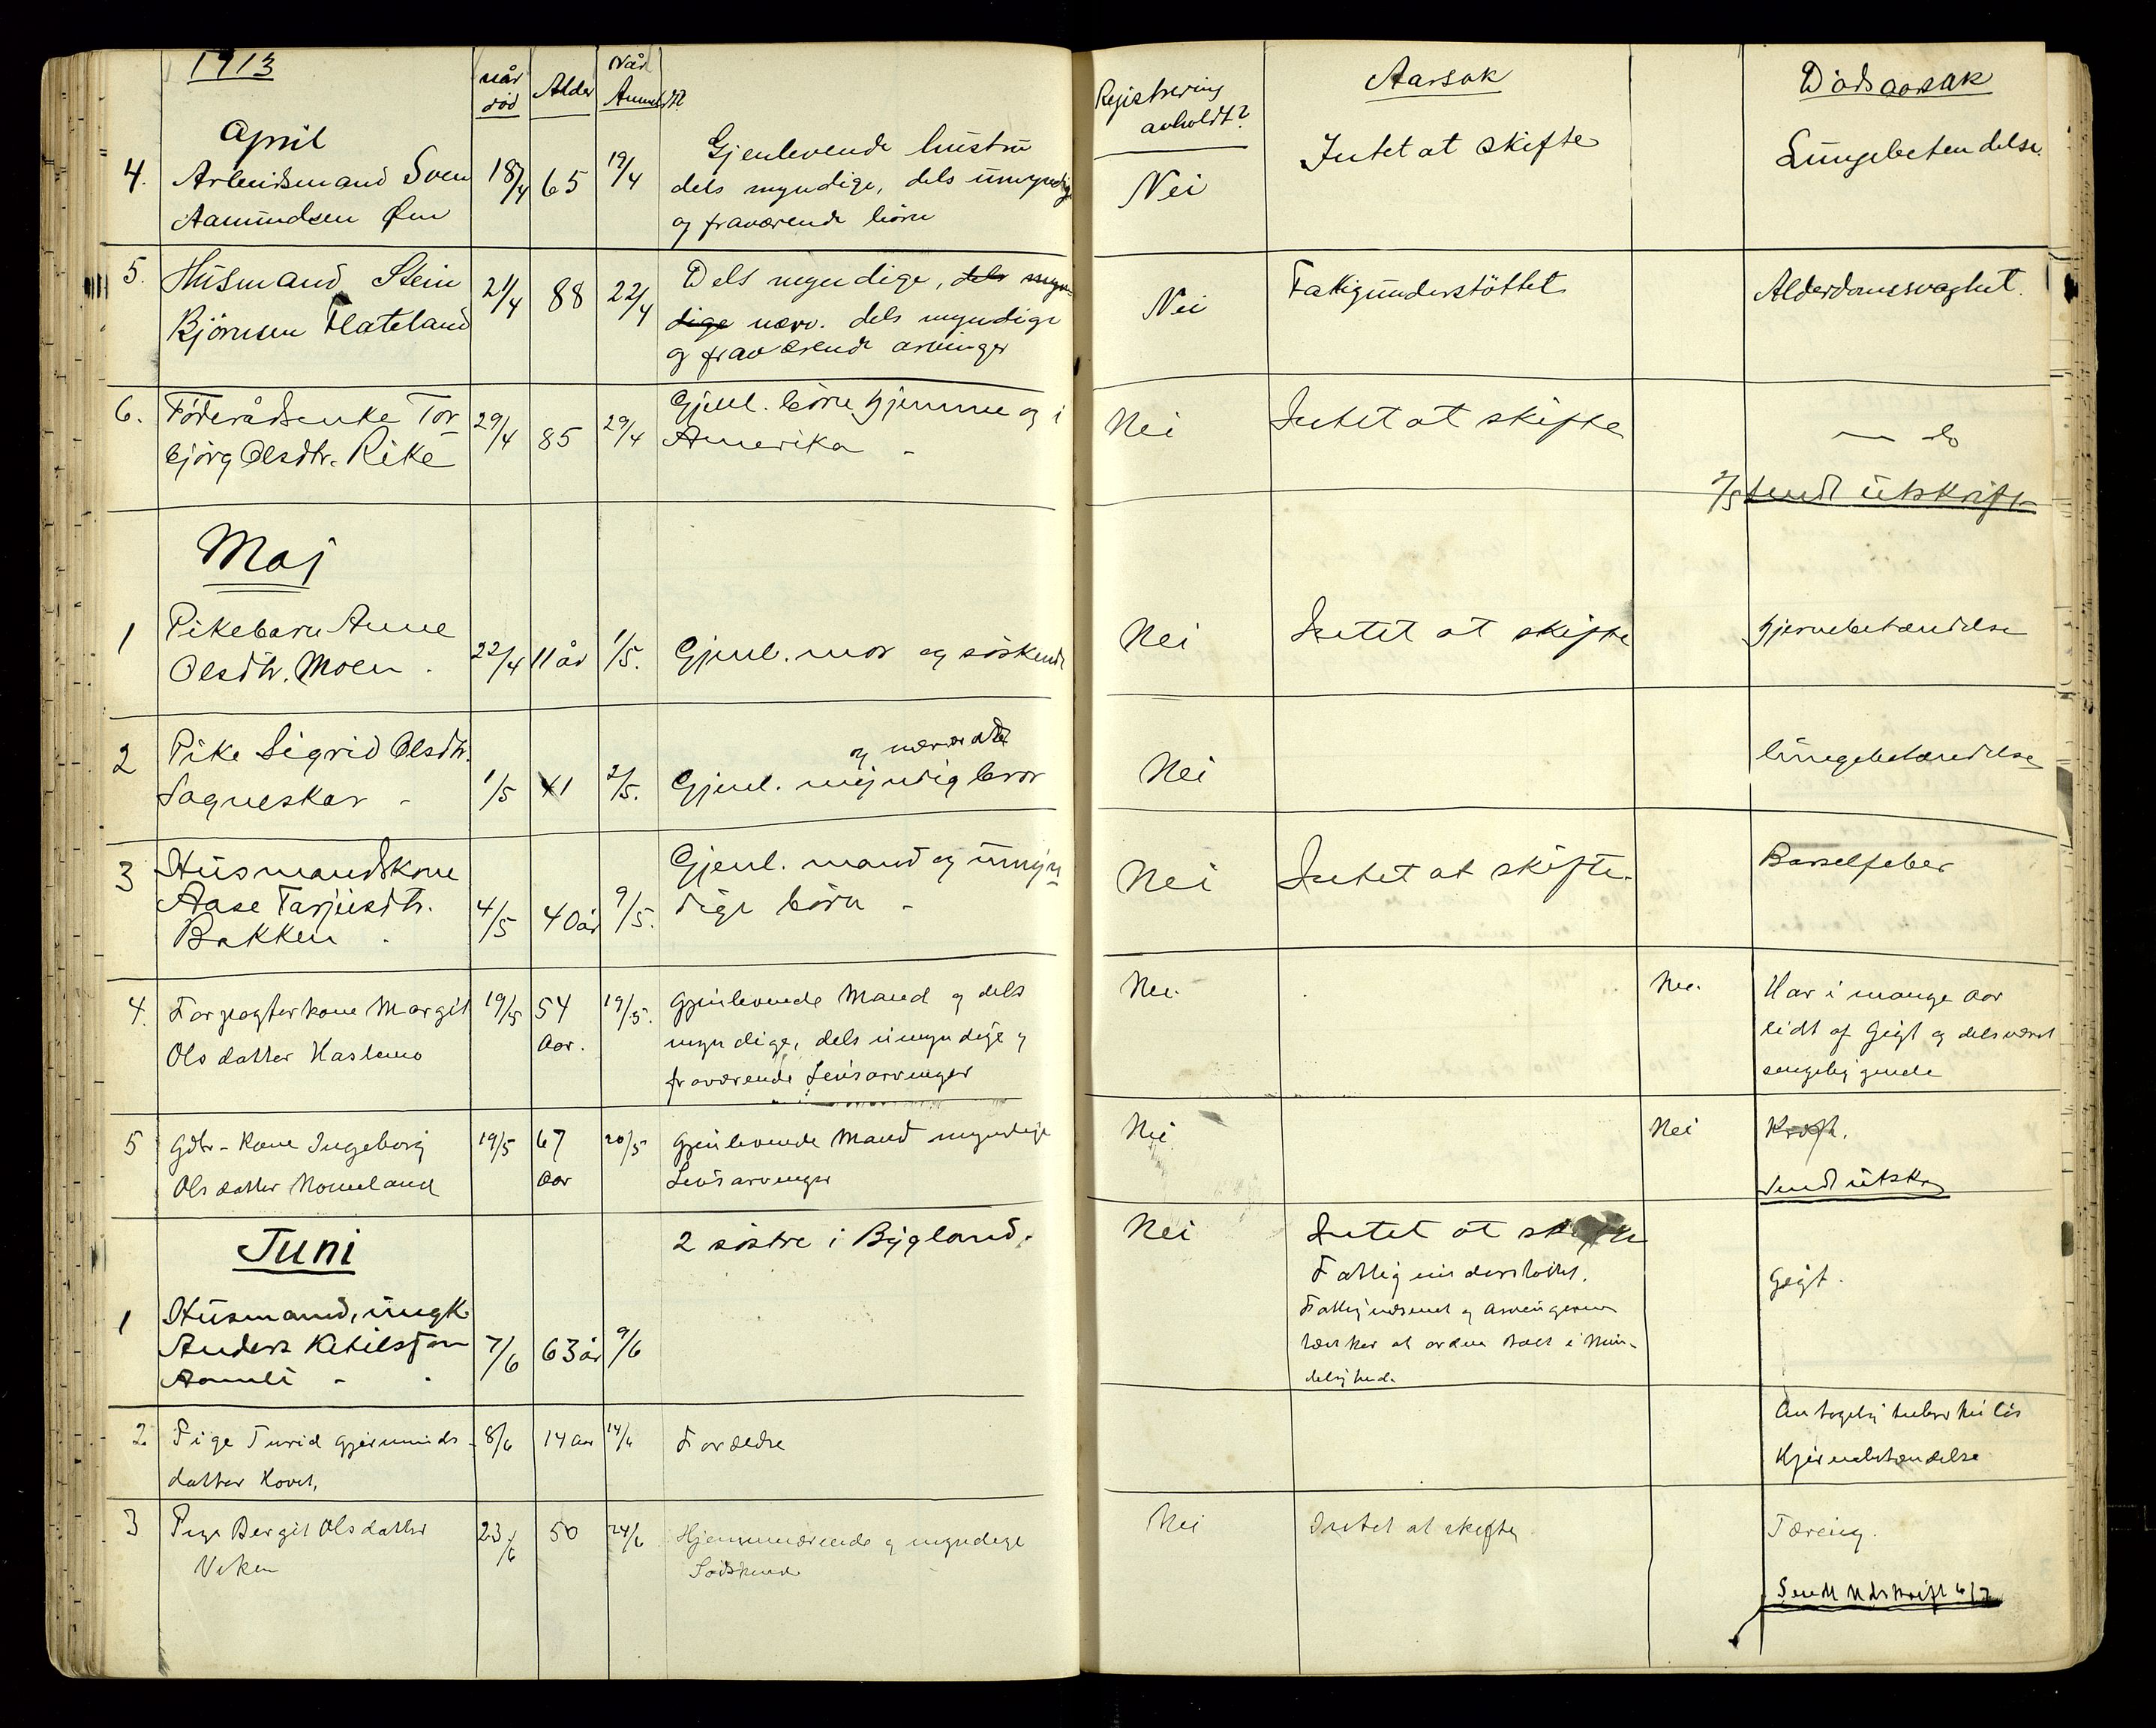 1913
når död
Alder
Når Anmeldt
Registrering avholdt?
Aarsak
Dödsaarsak
April
4. Arbeidsmand Sven 18/4 65 19/4 Gjenlevende hustru Nei Intet at skifte Lungebetendelse
Aamundsen Øen dels myndige, dels umyndige
og fraværende börn
5. Husmand Stein 21/4 88 22/4 Dels myndige, dels myn- Nei Fattigunderstöttet Alderdomssvaghet.
Björnsen Flateland dige nærv. dels myndige
og fraværende arvinger
6. Föderådsenke Tor 29/4 85 29/4 Gjenl. börn hjemme og i Nei Intet at skifte — do
björg Olsdtr. Rike Amerika -
2/5 sendt utskrift
Maj
1 Pikebarn Anne 22/4 11 år 1/5. Gjenl. mor og söskende Nei Intet at skifte Hjernebetændelse
Olsdtr. Moen.
2 Pike Sigrid Olsdtr. 1/5 2/5. Gjenl. myndig bror Nei lungebetændelse
og nærværende
3 Husmandskone 4/5 40 år 9/5. Gjenl. mand og umyn Nei Intet at skifte. Barselfeber
Aase Tarjeisdtr. dige börn -
Bakken.
4. Forpagterkone Margit 19/5 54 19/5. Gjenlevende Mand og dels Nei. Nei. Har i mange aar
Olsdatter Haslemo Aar. myndige, dels umyndige og lidt af Gigt og dels været
fraværende Livsarvinger sengeliggende
5 Gdbr-Kone Ingeborg 19/5 67 20/5 Gjenlevende Mand myndige Nei Nei Kræft.
Olsdatter Nomeland Aar Livsarvinger
Sendt utskr
Juni
2 söstre i Bygland. Nei Intet at skifte
Fattigunderstöttet. Gigt.
1 Husmand, ungk. Fattigvæsenet og Arvingerne
Anders Ketilsson 7/6 63 år 9/6
Aamli - delighed.
2. Pige Turid Gjermunds- 8/6 14 Aar 14/6 Forældre Antagelig tuberkuløs
datter Hovet, Hjernebetændelse
3 Pige Bergit Olsdatter 23/6 50 24/6 Hjemmeværende og myndige Nei Intet at skifte Tæring.
Viken Södskende
Sendt Udskrift 6/7